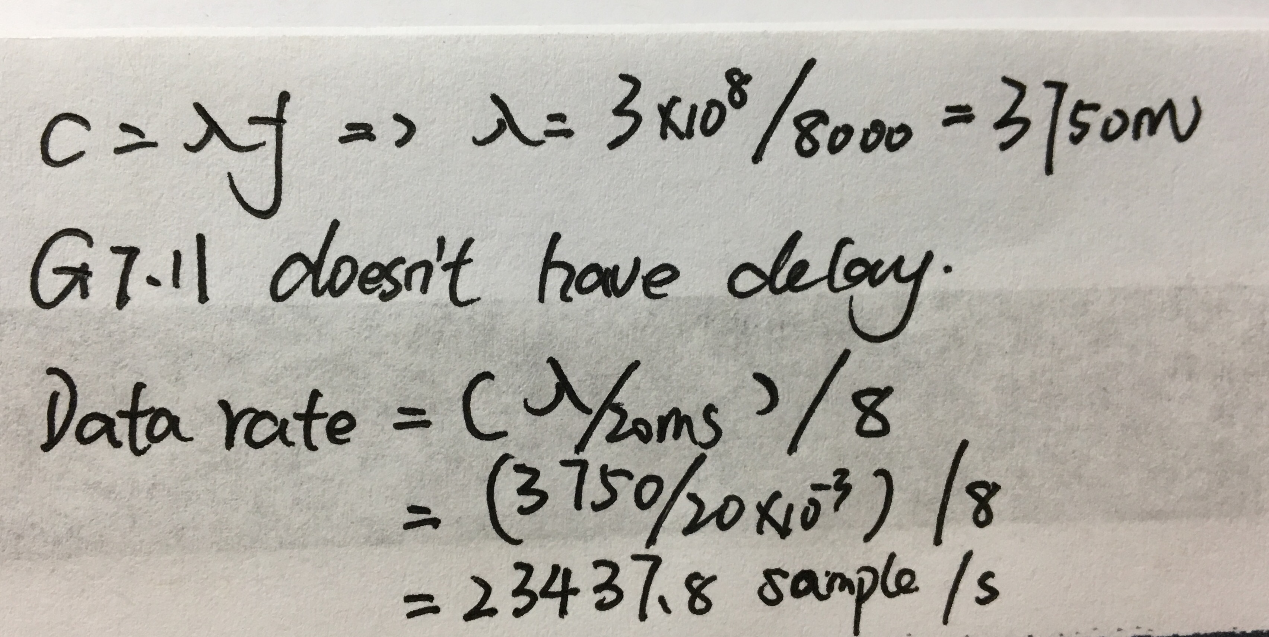 C = λf => λ = 3×10⁸/8000 = 3750m
G7.11 doesn't have delay.
Data rate = (λ/20ms)/8
= (3750/20×10⁻³)/8
= 23437.8 sample/s